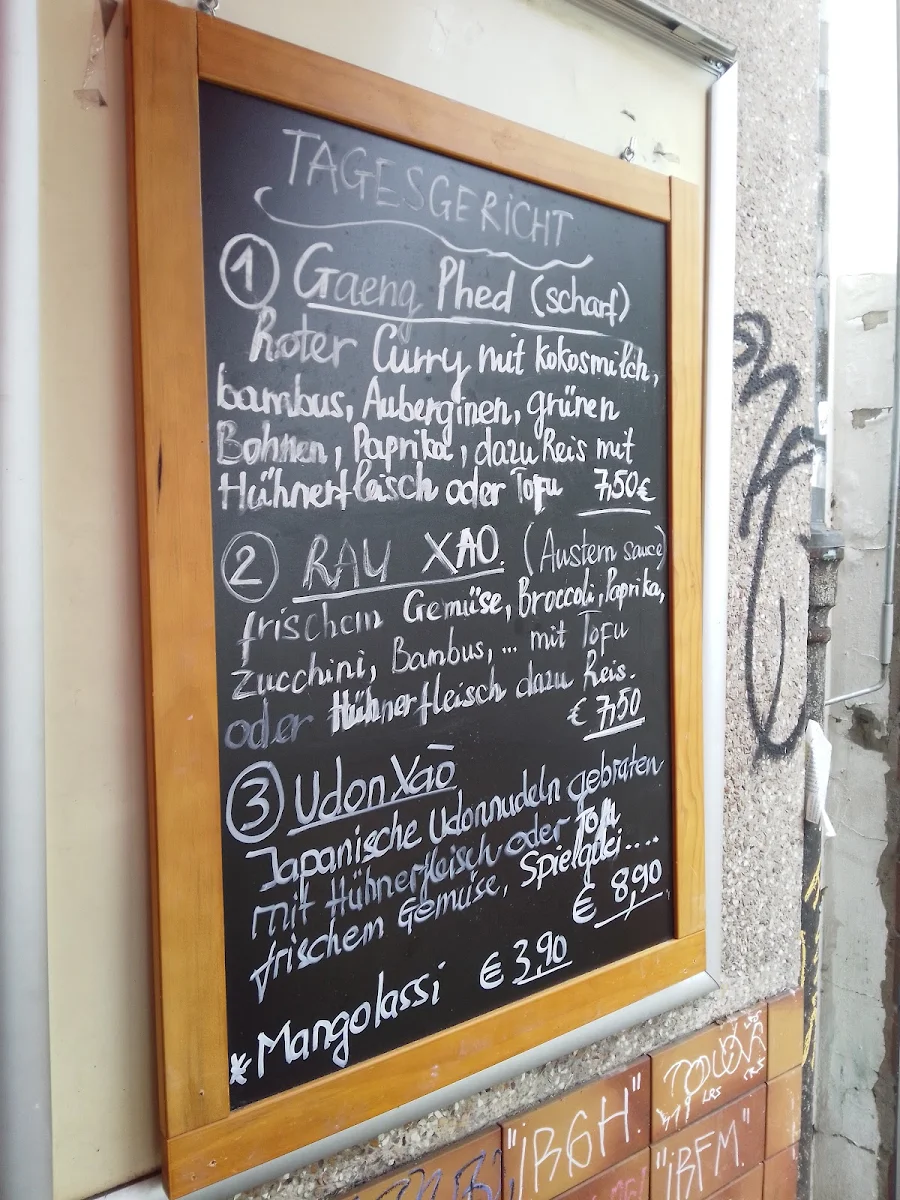 TAGESGERICHT
① Gaeng Phed (scharf)
Roter Curry mit kokosmilch,
bambus, Auberginen, grünen
Bohnen, Paprika, dazu Reis mit
Hühnerfleisch oder Tofu 7,50€
② RAU XAO. (Austern sauce)
frischem Gemüse, Broccoli, Paprika,
Zucchini, Bambus, ... mit Tofu
oder Hühnerfleisch dazu Reis.
€ 7,50
③ Udon Xaō
Japanische Udonnudeln gebraten
mit Hühnerfleisch oder Tofu
frischem Gemüse, Spielgelei....
€ 8,90
*Mangolassi € 3,90
"iBGH"
LRS
"iBFM"